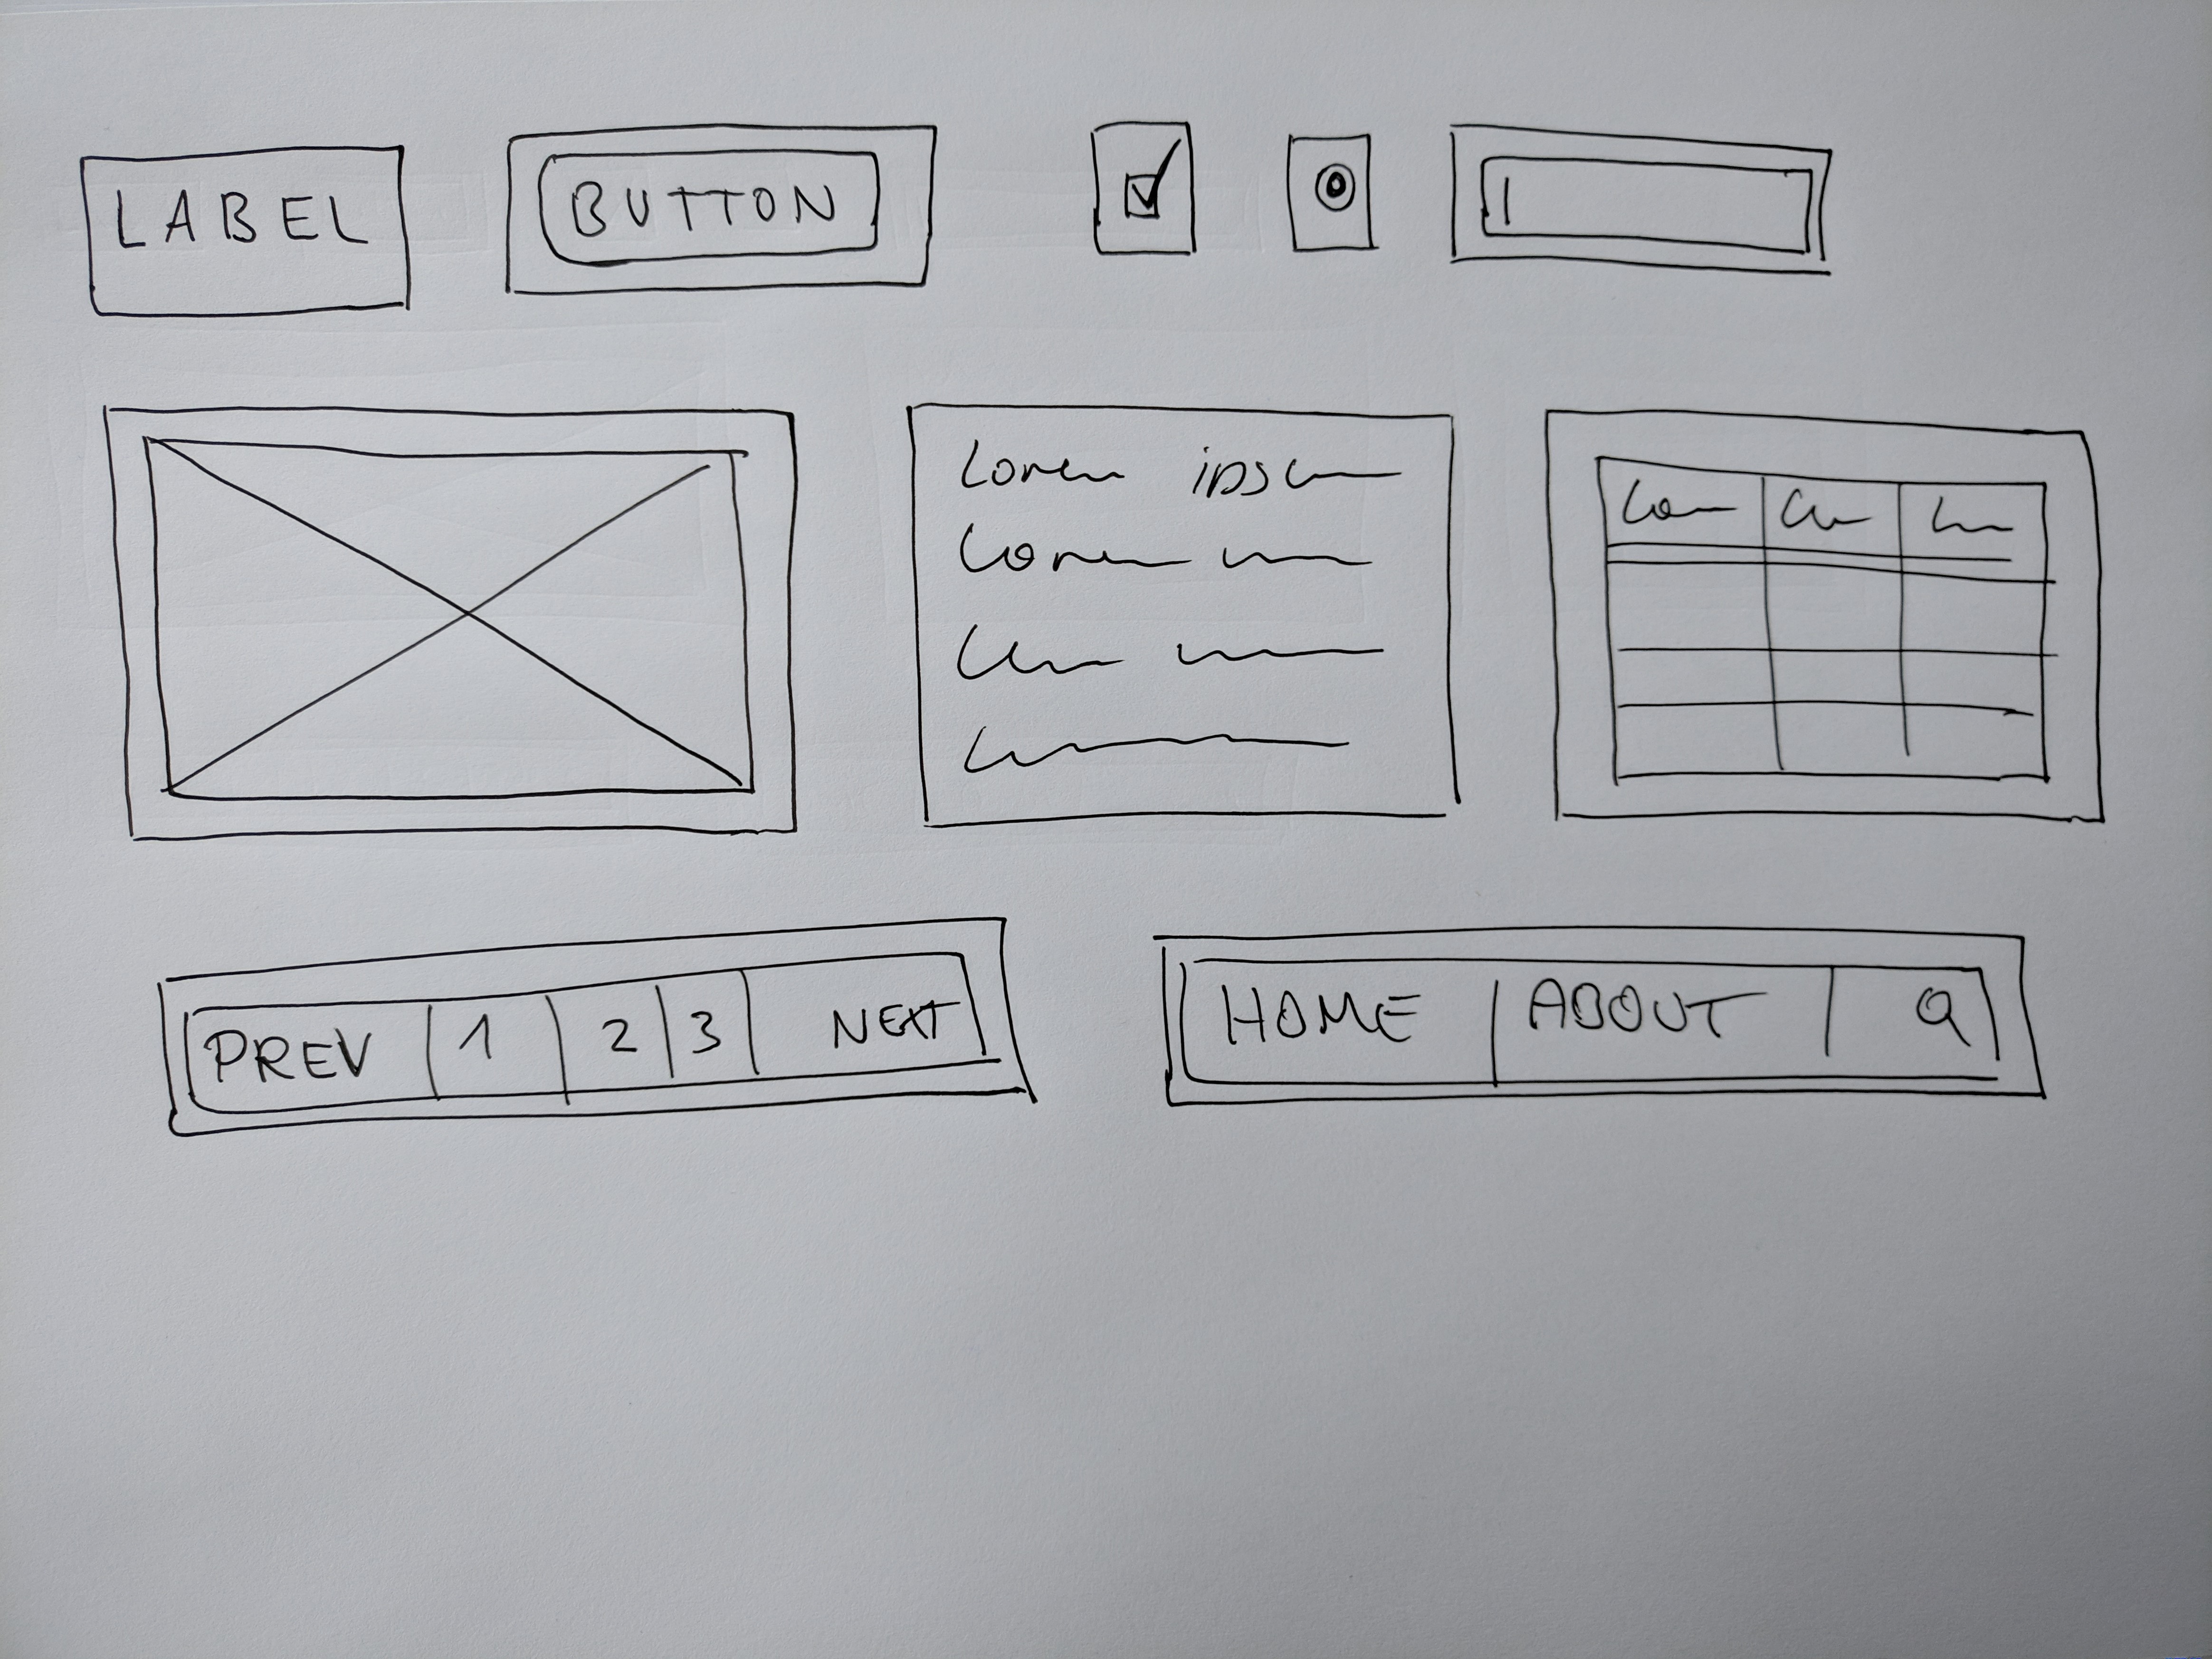 LABEL
BUTTON
Lorem ipsum
Lorem
PREV 1 2 3 NEXT
HOME ABOUT